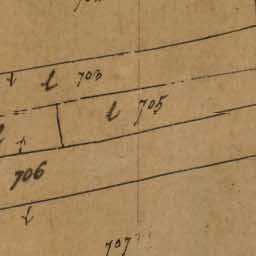 l 703
l 705
706
707